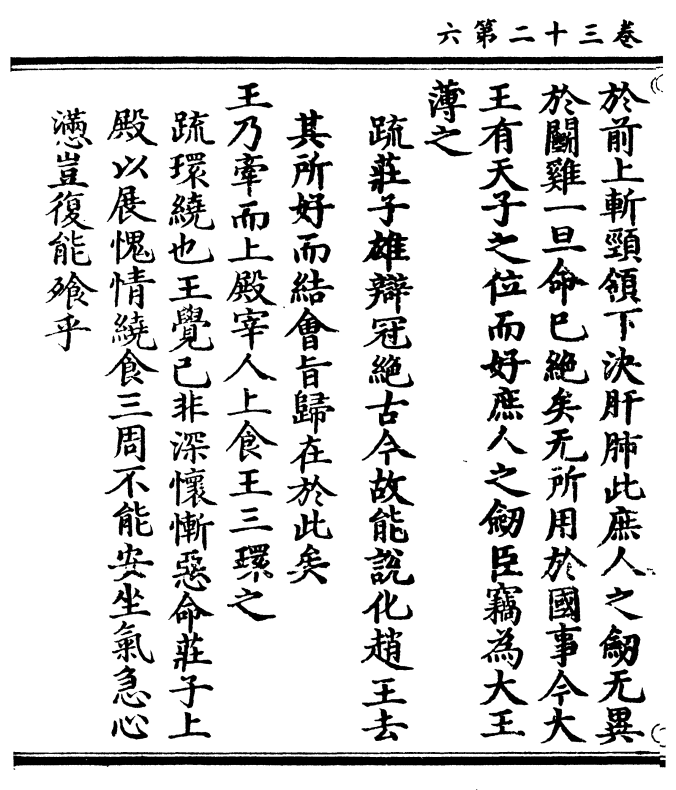 卷三十二第六
於前上斬頸領下決肝肺此庶人之劒无異
於鬭雞一旦命已絶矣无所用於國事今大
王有天子之位而好庶人之劒臣竊為大王
薄之
疏莊子雄辯冠絶古今故能說化趙王去
其所好而結會旨歸在於此矣
王乃牽而上殿宰人上食王三環之
疏環繞也王覺已非深懷慚惡命莊子上
殿以展愧情繞食三周不能安坐氣急心
懣豈復能飱乎